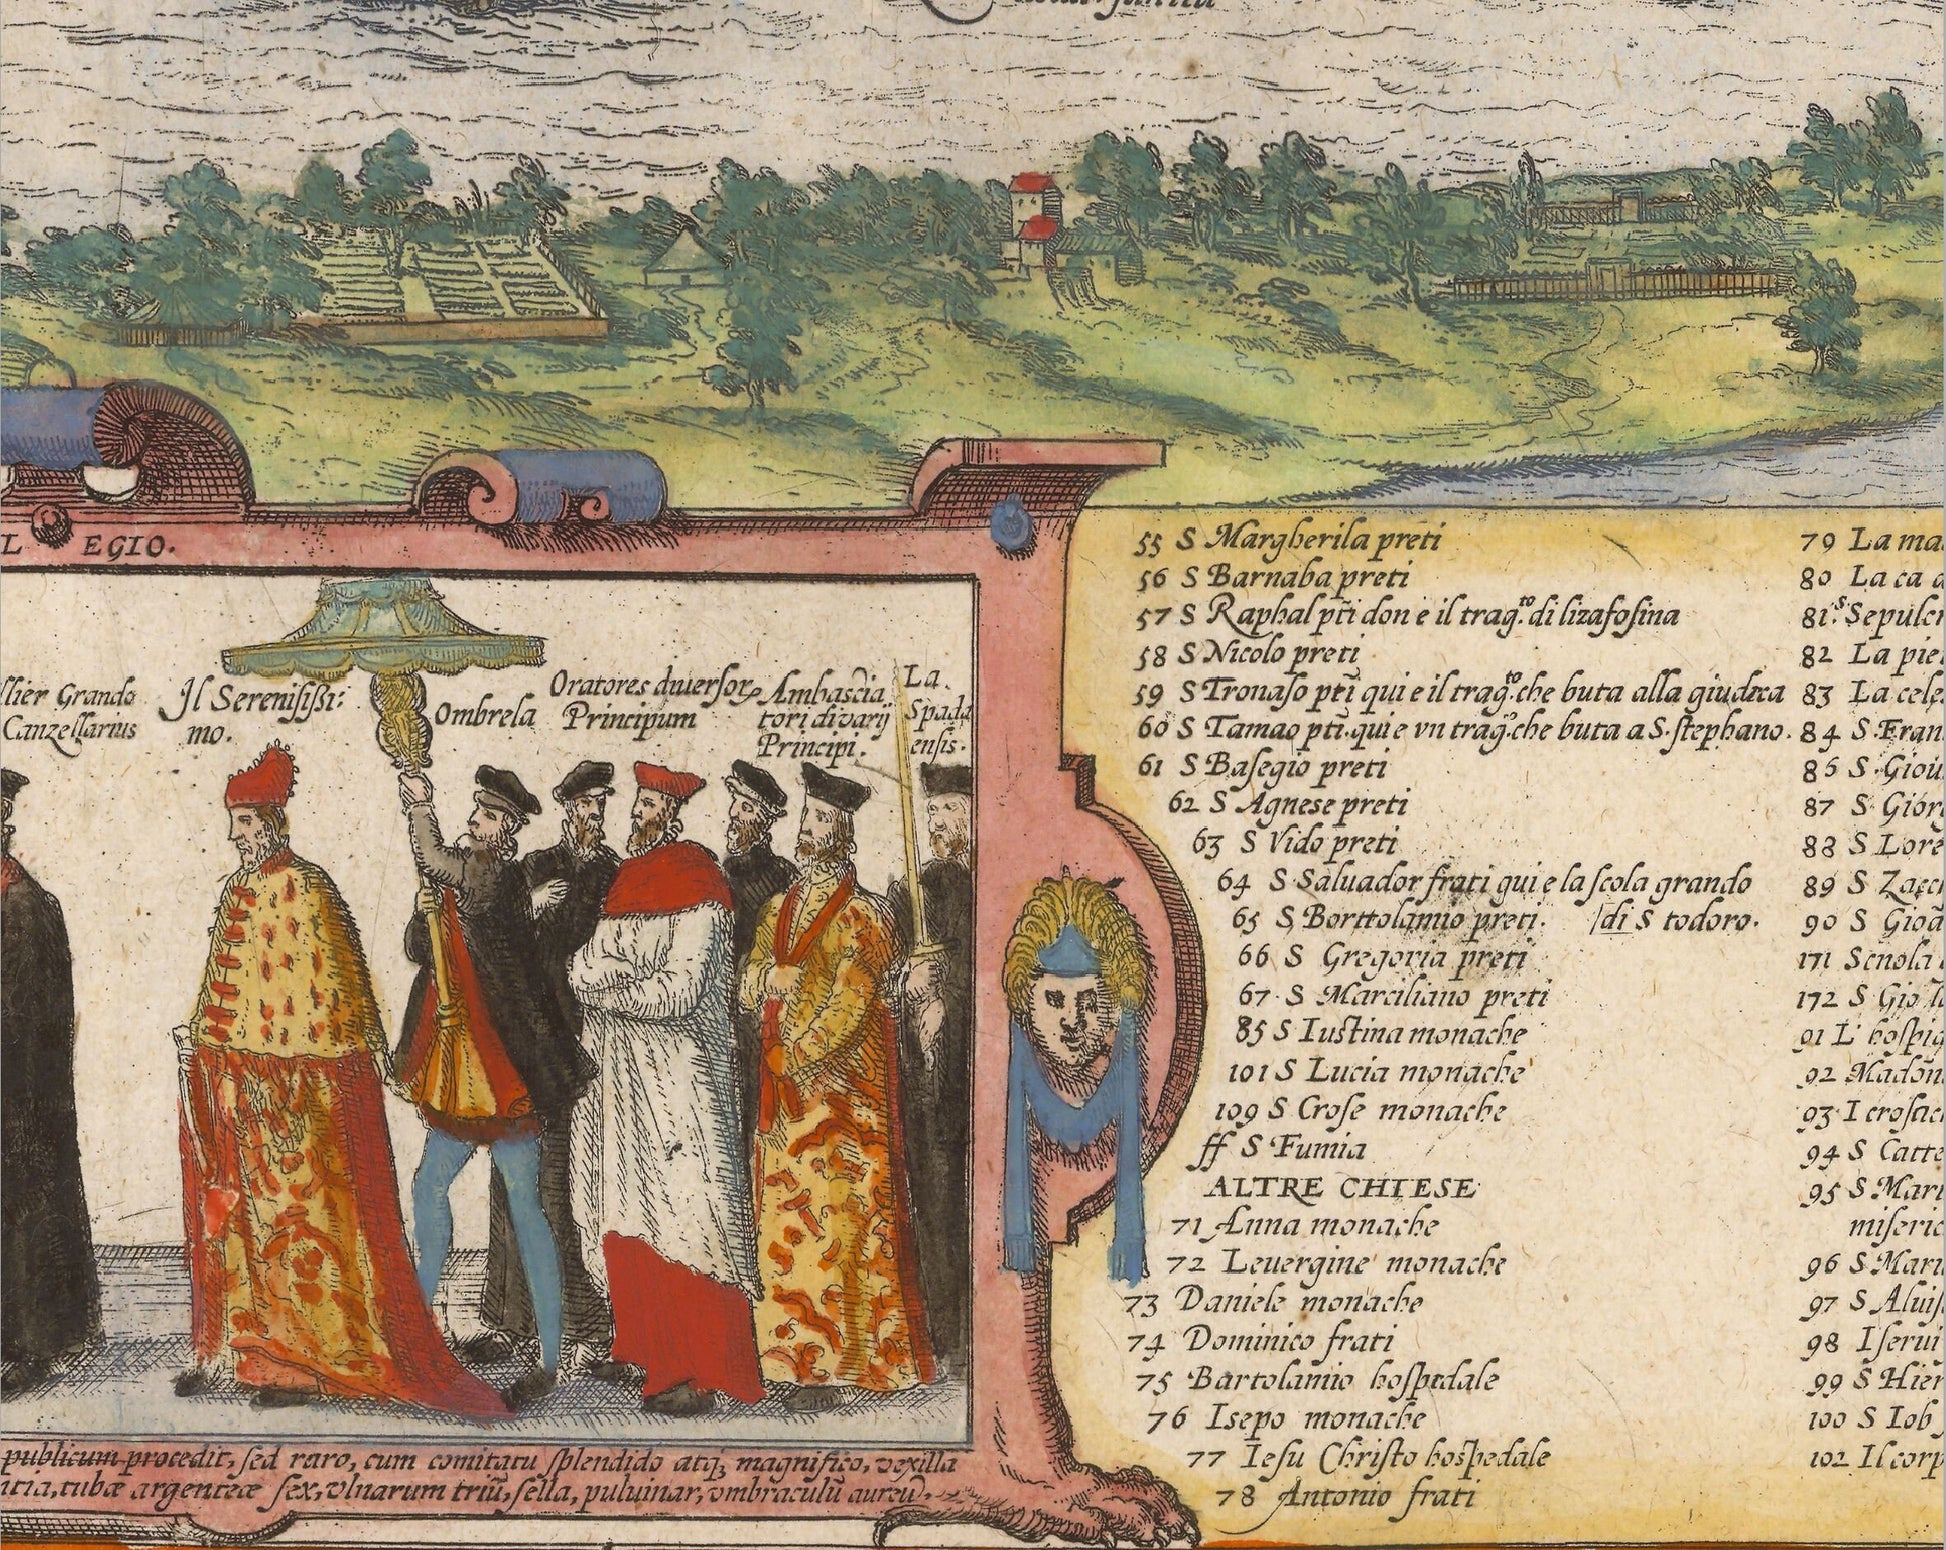 EGIO.
Grando
Canzellarius
Il Serenissi:
mo.
Ombrela
Oratores diuersor
Principum
Ambascia
tori di varij
Principi.
La
Spada
ensis.
publicum procedit, sed raro, cum comitatu splendido atq; magnifico, vexilla
tubæ argenteæ sex, vlnarum triū, sella, puluinar, vmbraculū aureū.
55 S Margherila preti
56 S Barnaba preti
57 S Raphal pti don e il trag.to di lizafosina
58 S Nicolo preti
59 S Tronaso pti qui e il trag.to che buta alla giudeca
60 S Tamao pti. qui e vn trag.o che buta a S. stephano.
61 S Basegio preti
62 S Agnese preti
63 S Vido preti
64 S Saluador frati qui e la scola grando
65 S Borttolamio preti. di S todoro.
66 S Gregoria preti
67 S Marciliano preti
85 S Iustina monache
101 S Lucia monache
109 S Crose monache
ff S Fumia
ALTRE CHIESE
71 Anna monache
72 Leuergine monache
73 Daniele monache
74 Dominico frati
75 Bartolamio hospedale
76 Isepo monache
77 Iesu Christo hospedale
78 Antonio frati
79 La
80 La ca
81 S
82 La
83 La
84 S
86 S
87 S
88 S
89 S
90 S
171
172 S
91 L
92
93 I
94 S
95 S
96 S
97 S
98 I
99 S
100 S Iob
102 Il